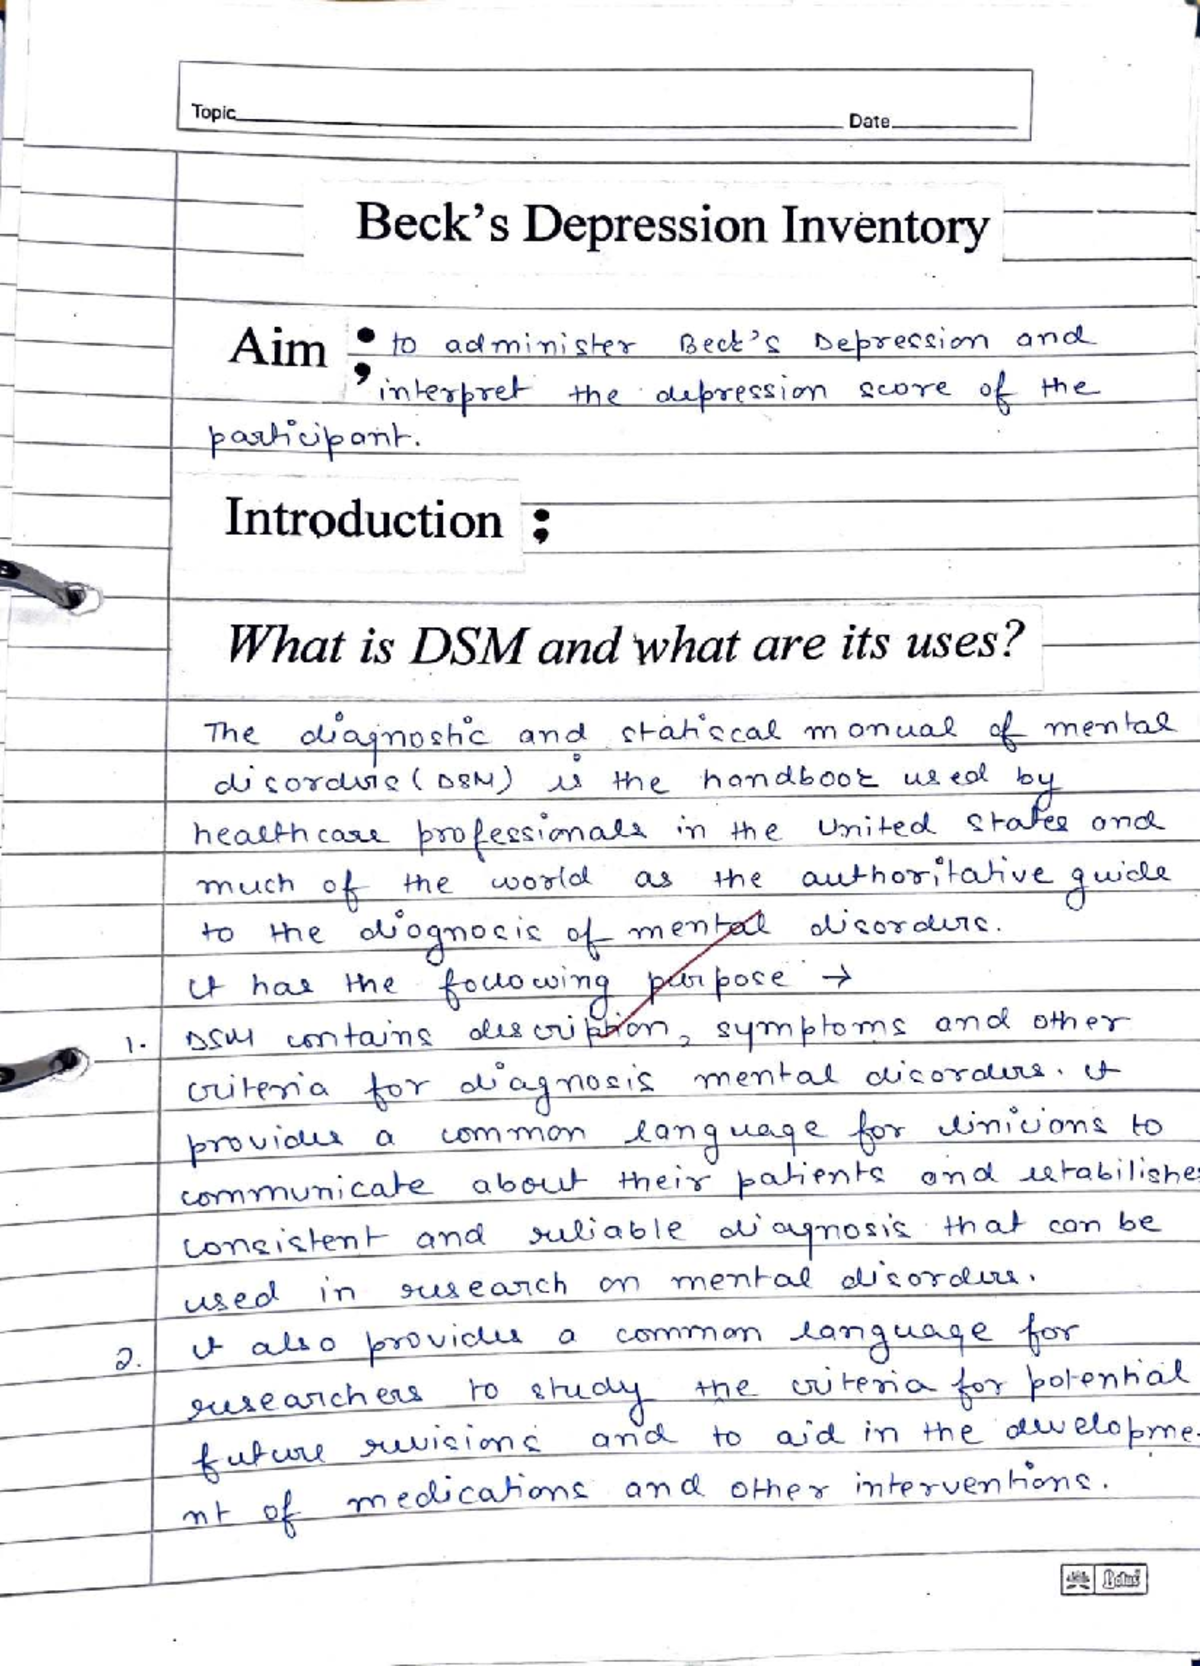 Topic Date
Beck's Depression Inventory
Aim : to administer Beck's Depression and
interpret the depression score of the
participant.
Introduction :
What is DSM and what are its uses?
The diagnostic and statiscal manual of mental
disorders (DSM) is the handbook used by
healthcare professionals in the United States and
much of the world as the authoritative guide
to the diognosis of mental disorders.
it has the following purpose →
1. DSM contains description, symptoms and other
criteria for diagnosis mental disorders. it
provides a common language for clinicians to
communicate about their patients and establishes
consistent and reliable diagnosis that can be
used in research on mental disorders.
2. it also provides a common language for
researchers to study the criteria for potential
future revisions and to aid in the developme-
nt of medications and other interventions.